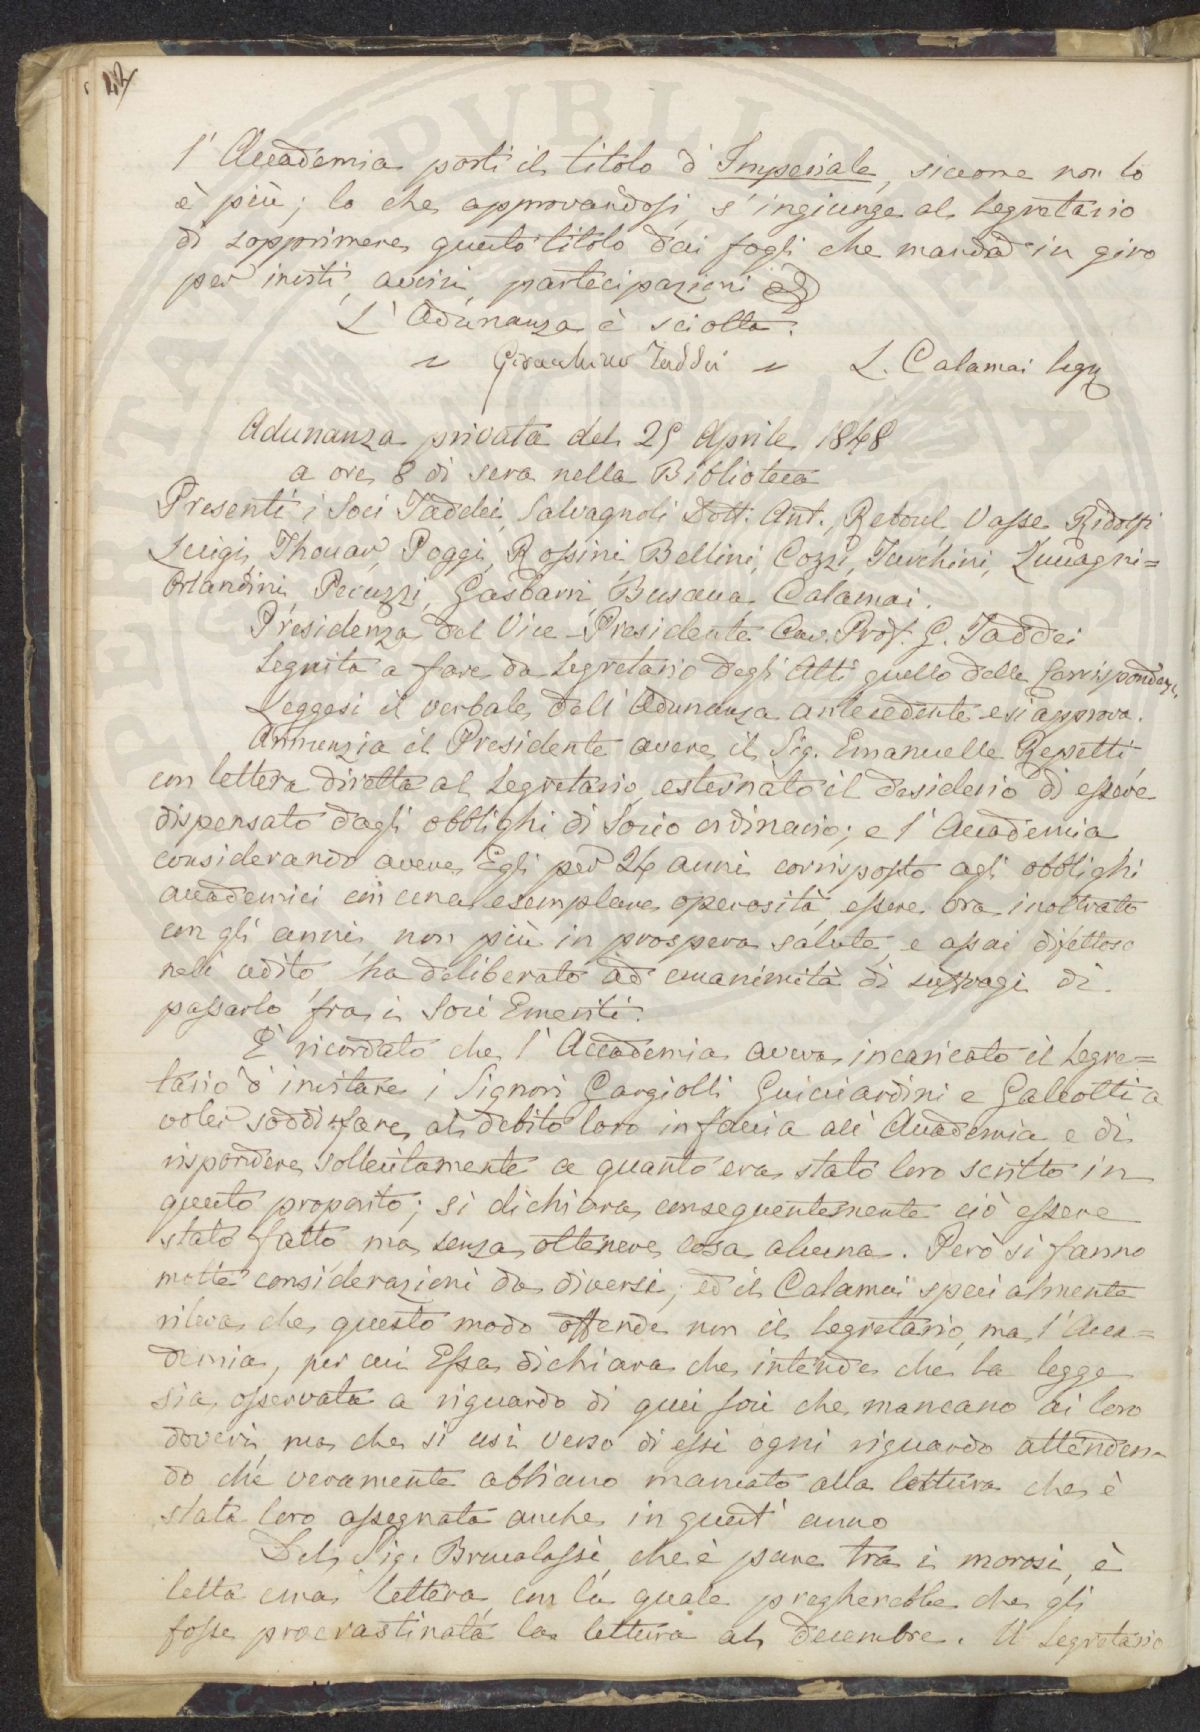 42
l'Accademia porti il titolo d'Imperiale, siccome non lo
è più; lo che approvandosi, s'ingiunge al Segretario
di sopprimere questo titolo dai fogli che manda in giro
per inviti, avvisi, partecipazioni
L'Adunanza è sciolta.
" Gioacchino Taddei " L. Calamai Segr
Adunanza privata del 25 Aprile 1848
a ore 8 di sera nella Biblioteca
Presenti i Soci Taddei, Salvagnoli Dott. Ant., Reboul, Vasse Ridolfi
Luigi, Thouar, Poggi, Rossini, Bellini, Cozzi, Turchini, Zuccagni=
Orlandini, Peruzzi, Gasbarri, Busacca, Calamai.
Presidenza del Vice-Presidente Cav. Prof. G. Taddei
Seguita a fare da Segretario degli Atti quello delle Corrispondenze,
Leggesi il verbale dell'Adunanza antecedente e si approva.
Annunzia il Presidente avere il Sig. Emanuelle Repetti
con lettera diretta al Segretario, esternato il desiderio di essere
dispensato dagli obblighi di Socio ordinario; e l'Accademia
considerando avere Egli per 24 anni corrisposto agli obblighi
accademici con una esemplare operosità, essere ora inoltrato
con gli anni, non più in prospera salute, e assai difettoso
nell'udito, ha deliberato ad unanimità di suffragi di
passarlo fra i Soci Emeriti.
È ricordato che l'Accademia aveva incaricato il Segre=
tario d'invitare i Signori Gargiolli Guicciardini e Galeotti a
voler soddisfare al debito loro in faccia all'Accademia e di
rispondere sollecitamente a quanto era stato loro scritto in
questo proposito; si dichiara conseguentemente ciò essere
stato fatto, ma senza ottenere cosa alcuna. Però si fanno
molte considerazioni da diversi; ed il Calamai specialmente
rileva che questo modo offende non il Segretario, ma l'Acca=
demia, per cui Essa dichiara che intende che la legge
sia osservata a riguardo di quei soci che mancano ai loro
doveri, ma che si usi verso di essi ogni riguardo attenden-
do che veramente abbiano mancato alla lettura che è
stata loro assegnata anche in quest'anno
Del Sig. Brucalassi, che è pure tra i morosi, è
letta una lettera, con la quale pregherebbe che gli
fosse procrastinata la lettura al decembre. Il Segretario